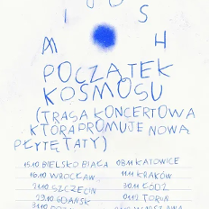 I O S
M H
POCZĄTEK
KOSMOSU
(TRASA KONCERTOWA
KTÓRA PROMUJE NOWĄ
PŁYTĘ TATY)
15.10 BIELSKO BIAŁA 08.11 KATOWICE
16.10 WROCŁAW 11.11 KRAKÓW
21.10 SZCZECIN 30.11 ŁÓDŹ
29.10 GDAŃSK 01.12 TORUŃ